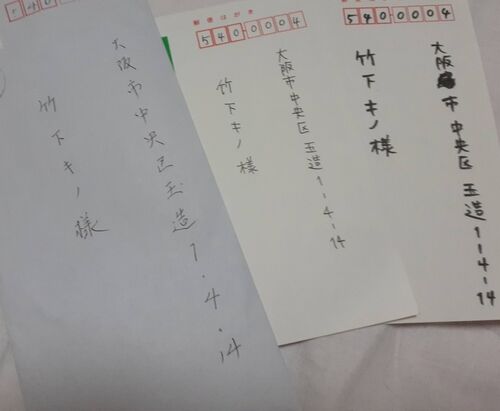 540
大阪市中央区玉造1.4.14
竹下キノ様
郵便はがき
5400004
大阪市中央区玉造1-4-14
竹下キノ様
5400004
大阪市中央区玉造1-4-14
竹下キノ様